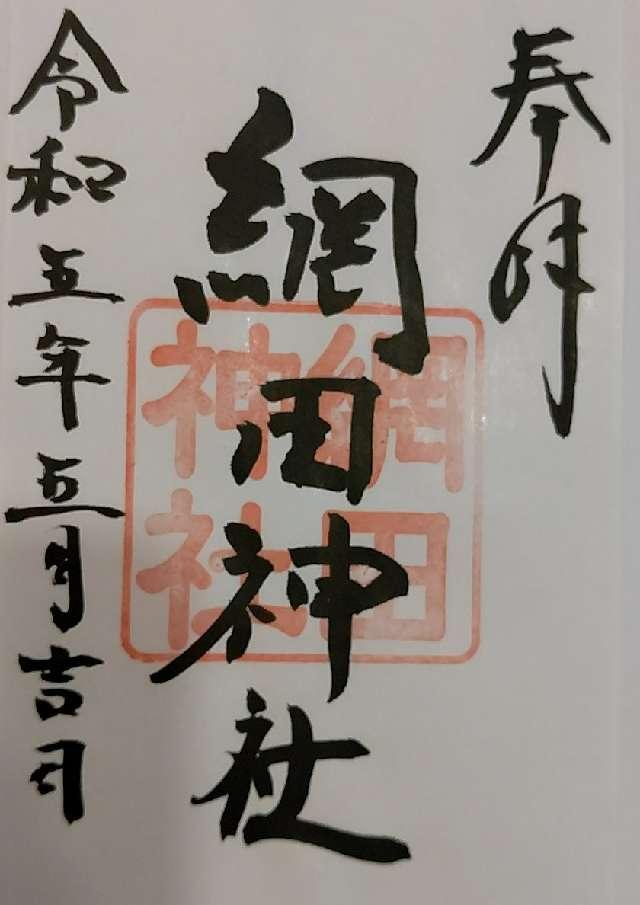 奉拝
網田神社
網田神社
令和五年五月吉日